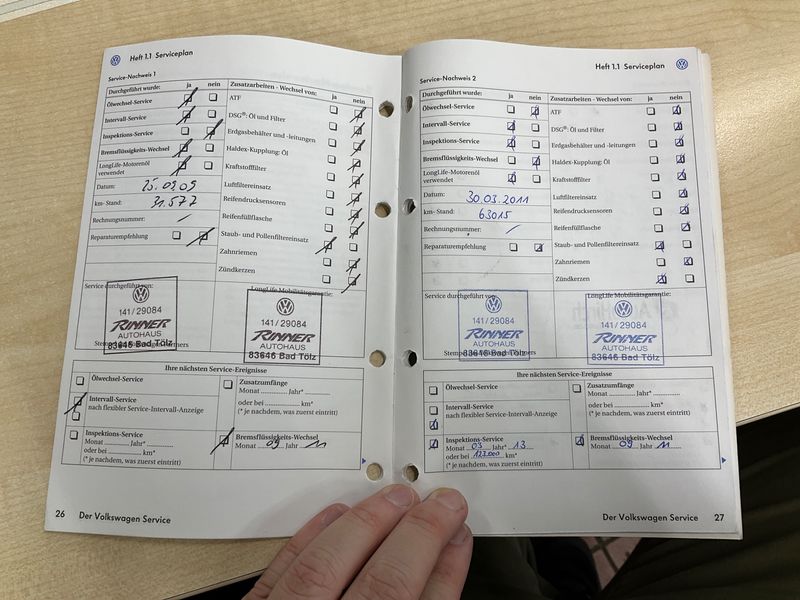 Heft 1.1 Serviceplan
Service-Nachweis 1
Durchgeführt wurde: ja nein
Ölwechsel-Service
Intervall-Service
Inspektions-Service
Bremsflüssigkeits-Wechsel
LongLife-Motorenöl
verwendet
Datum: 25.09.09
km- Stand: 31.577
Rechnungsnummer: /
Reparaturempfehlung
Zusatzarbeiten - Wechsel von: ja nein
ATF
DSG®: Öl und Filter
Erdgasbehälter und -leitungen
Haldex-Kupplung: Öl
Kraftstofffilter
Luftfiltereinsatz
Reifendrucksensoren
Reifenfüllflasche
Staub- und Pollenfiltereinsatz
Zahnriemen
Zündkerzen
Service durchgeführt von:
141/29084
RINNER
AUTOHAUS
83646 Bad Tölz
LongLife Mobilitätsgarantie:
141/29084
RINNER
AUTOHAUS
83646 Bad Tölz
Ihre nächsten Service-Ereignisse
Ölwechsel-Service
Intervall-Service
nach flexibler Service-Intervall-Anzeige
Inspektions-Service
Monat ............ Jahr* ............
oder bei ............ km*
(* je nachdem, was zuerst eintritt)
Zusatzumfänge
Monat ............ Jahr* ............
oder bei ............ km*
(* je nachdem, was zuerst eintritt)
Bremsflüssigkeits-Wechsel
Monat 09 Jahr 11
26 Der Volkswagen Service
Heft 1.1 Serviceplan
Service-Nachweis 2
Durchgeführt wurde: ja nein
Ölwechsel-Service
Intervall-Service
Inspektions-Service
Bremsflüssigkeits-Wechsel
LongLife-Motorenöl
verwendet
Datum: 30.03.2011
km- Stand: 63015
Rechnungsnummer: /
Reparaturempfehlung
Zusatzarbeiten - Wechsel von: ja nein
ATF
DSG®: Öl und Filter
Erdgasbehälter und -leitungen
Haldex-Kupplung: Öl
Kraftstofffilter
Luftfiltereinsatz
Reifendrucksensoren
Reifenfüllflasche
Staub- und Pollenfiltereinsatz
Zahnriemen
Zündkerzen
Service durchgeführt von:
141/29084
RINNER
AUTOHAUS
83646 Bad Tölz
LongLife Mobilitätsgarantie:
141/29084
RINNER
AUTOHAUS
83646 Bad Tölz
Ihre nächsten Service-Ereignisse
Ölwechsel-Service
Intervall-Service
nach flexibler Service-Intervall-Anzeige
Inspektions-Service
Monat 03 Jahr 13
oder bei 123.000 km*
(* je nachdem, was zuerst eintritt)
Zusatzumfänge
Monat ............ Jahr* ............
oder bei ............ km*
(* je nachdem, was zuerst eintritt)
Bremsflüssigkeits-Wechsel
Monat 09 Jahr 11
Der Volkswagen Service 27